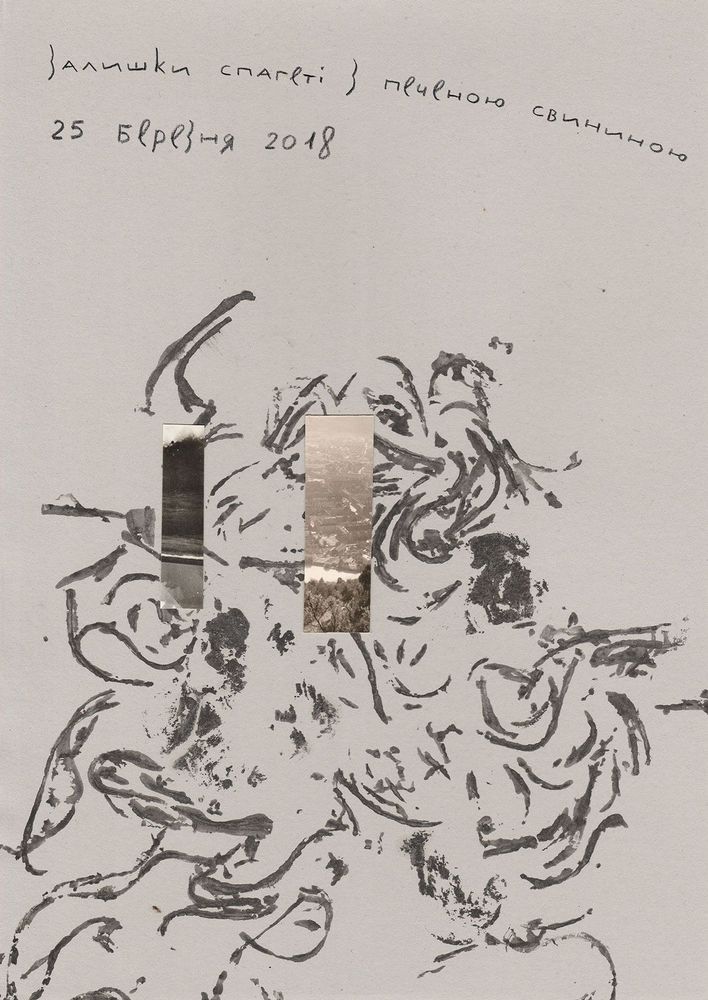 залишки спагеті з печеною свининою
25 березня 2018